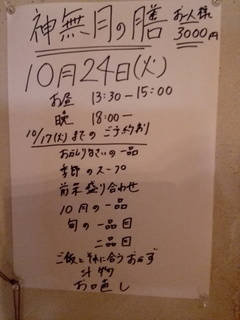 神無月の膳
お一人様
3000円
10月24日(火)
お昼 13:30-15:00
晩 18:00ー
10/17(火)までのご予約
季節のスープ
前菜盛り合わせ
10月の一品
旬の一品目
二品目
ご飯とそれに合うおかず
汁物
お口直し